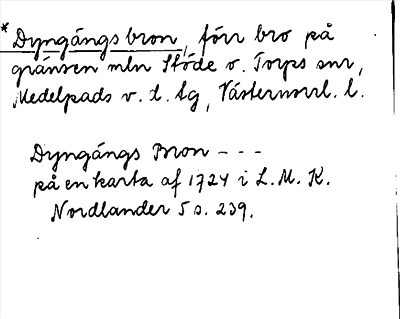 *Dyngångsbron, förr bro på
gränsen mln Stöde o. Torps snr,
Medelpads v. t. tg, Västernorrl. l.
Dyngångs Bron - - -
på en karta af 1724 i L. M. K.
Nordlander 5 s. 239.